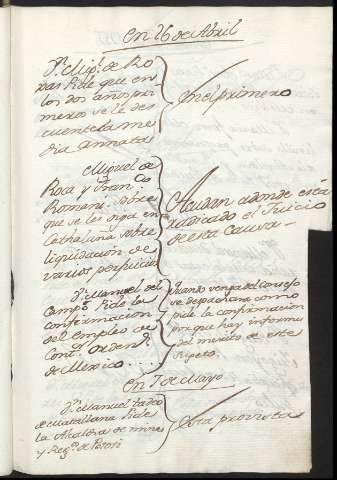 En 26 de Abril
Dn. Migl. de Ro
xas Pide que en
los dos años pri
meros se le des
cuente da me
dia annata
En el primero
Miguel de
Roca y Franco
Romani. sobre
que se les oiga en
Cathaluña sobre
liquidación de
varios perjuicios
Acudan adonde está
radicado el Juicio
de esta causa
Dn. Manuel del
Campo Pide la
confirmacion
del empleo de
Contr. Orden.
de Mexico
quando venga del consejo
se despachará como
pide la confirmacion
porque hay informes
del merito de este
Sugeto.
En 7 de Mayo
Dn. Manuel tadeo
de Pide
la Alcaldia de minas
y Regn. de Potosi
Está provista